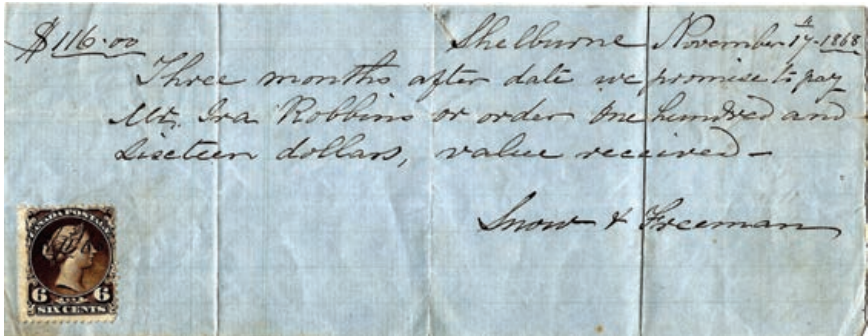 $116.00 Shelburne November 17th 1868
Three months after date we promise to pay
Mr. Ira Robbins or order One hundred and
Sixteen dollars, value received –
Snow & Freeman
CANADA POSTAGE
6 6
SIX CENTS